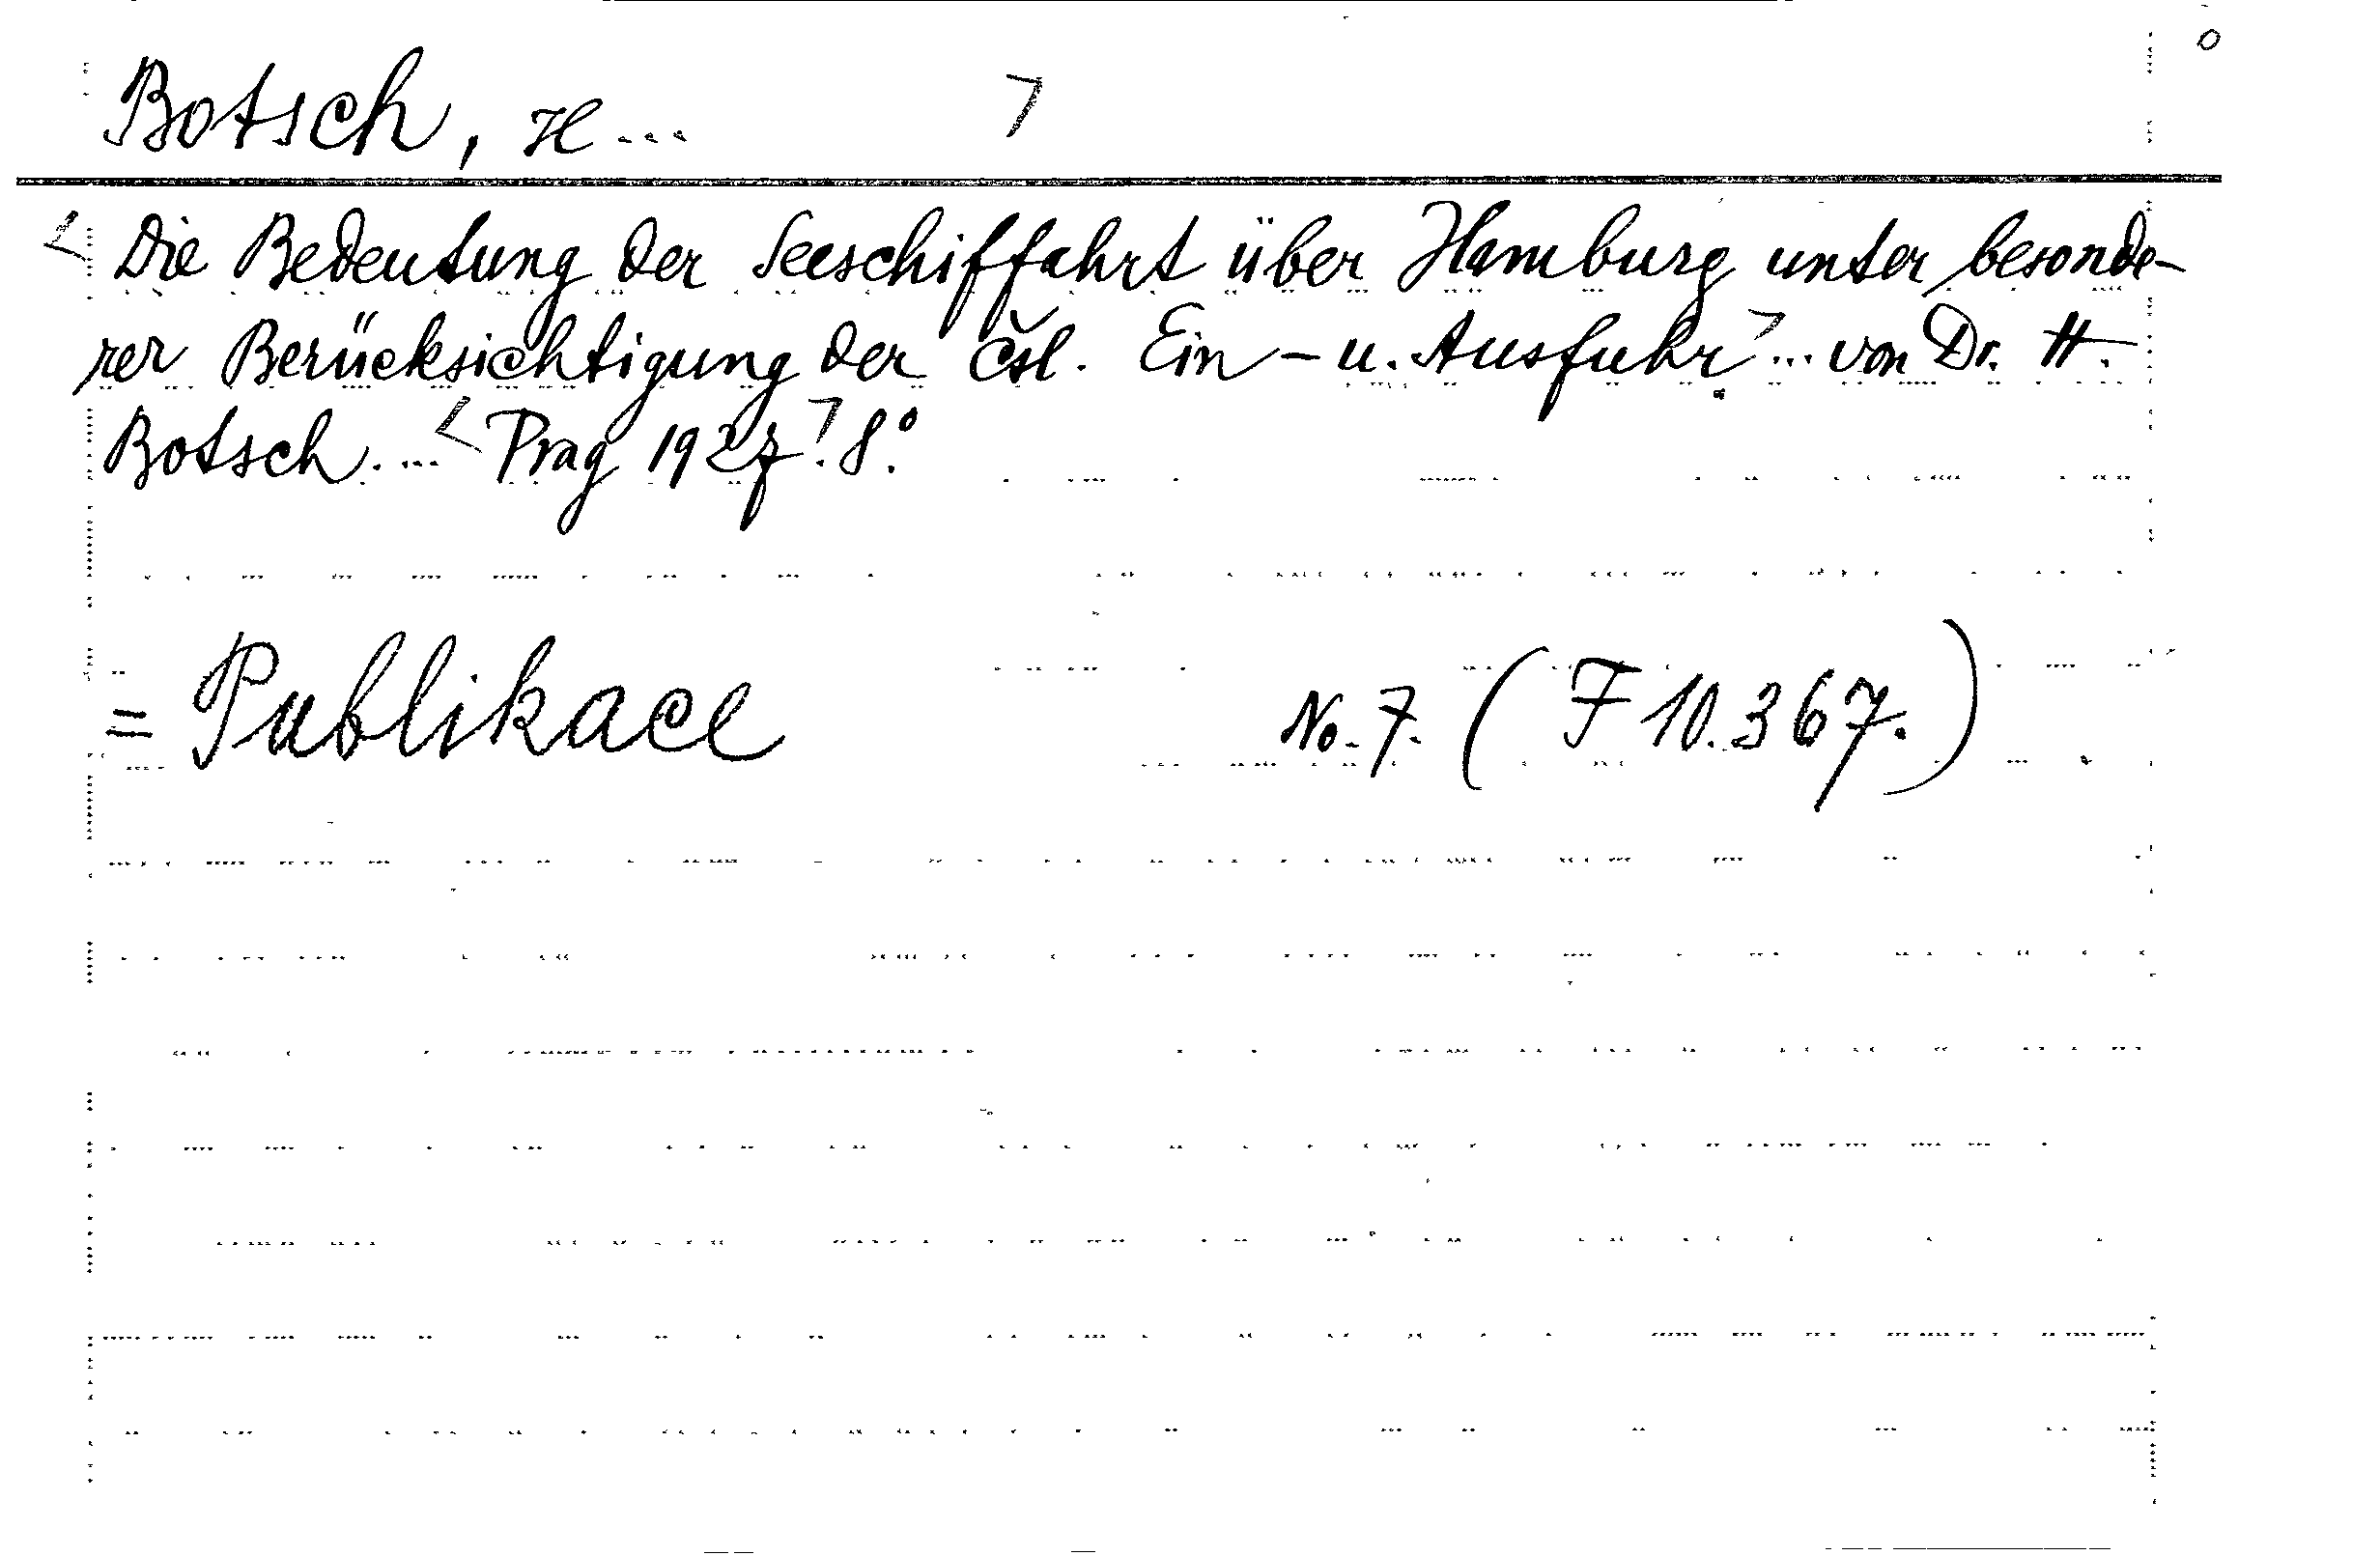 Botsch, H...
Die Bedeutung der Seeschiffahrt über Hamburg unter besonde-
rer Berücksichtigung der čsl. Ein- u. Ausfuhr... von Dr. H.
Botsch. ... Prag 1927. 8°.
= Publikace No. 7. (F 10.367.)